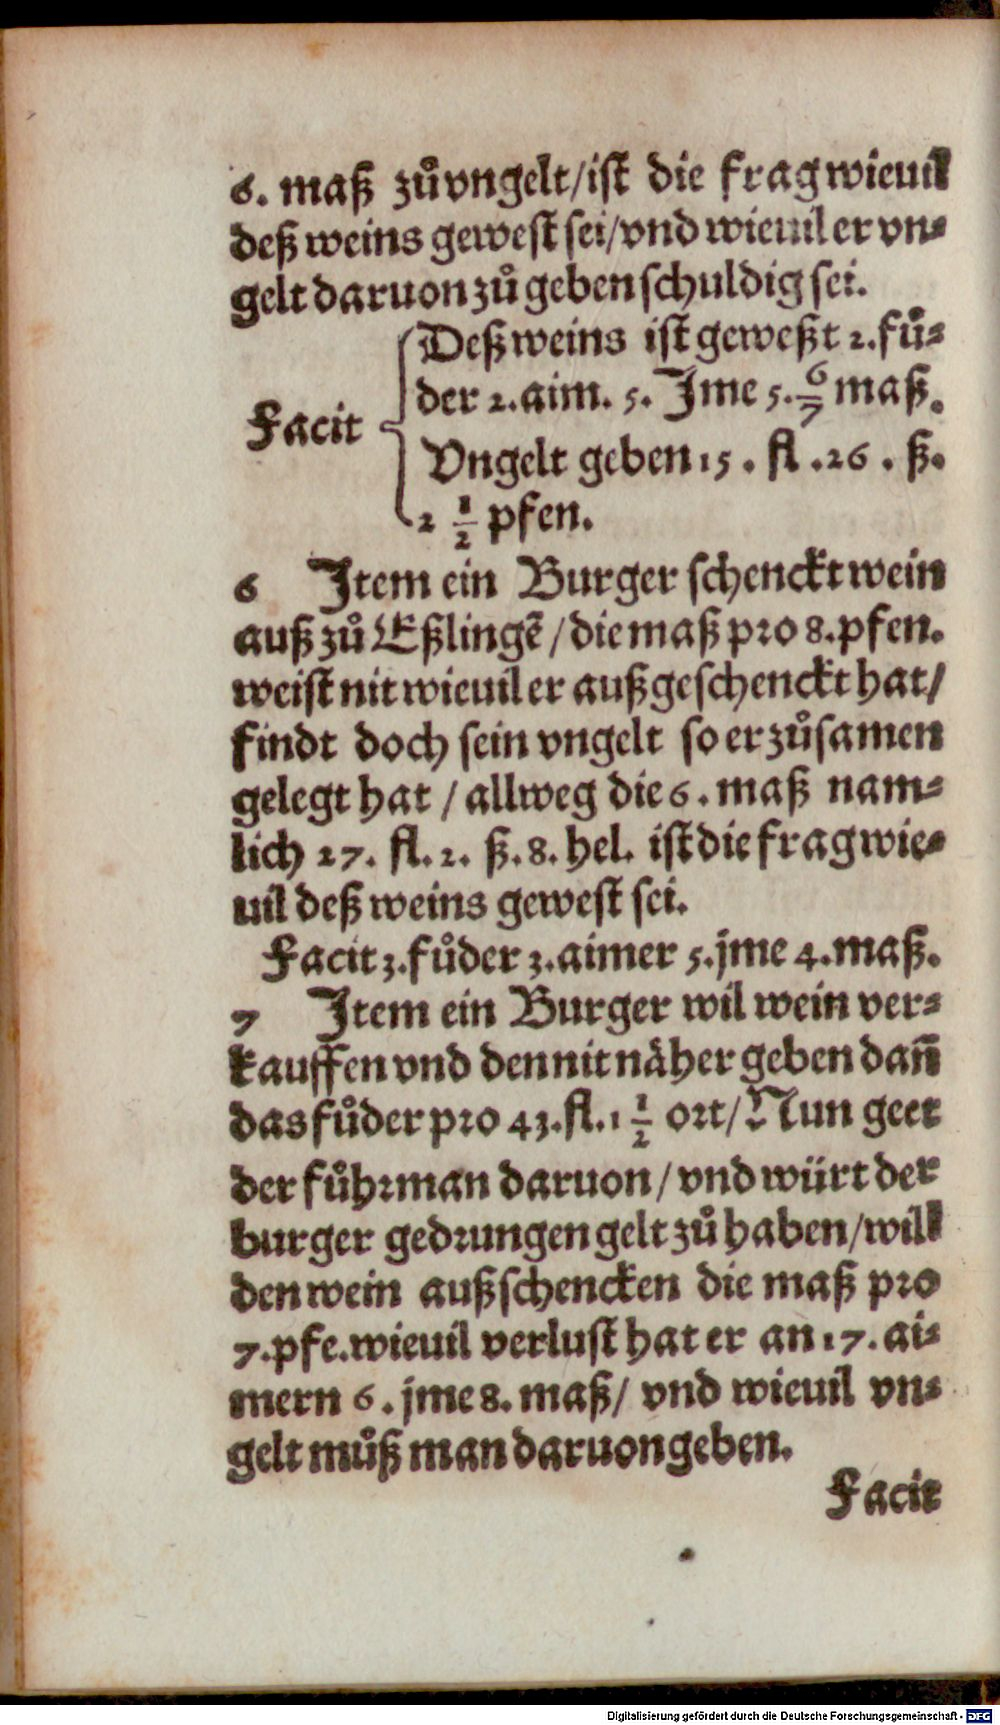 6. maß zuͦ vngelt/ist die frag wieuil
deß weins gewest sei/vnd wieuil er vn⸗
gelt daruon zuͦ geben schuldig sei.
Deß weins ist geweßt 2. fuͦ⸗
der 2. aim. 5. Jme 5. 6/7 maß.
Facit
Vngelt geben 15. fl. 26. ß.
2 1/2 pfen.
6 Jtem ein Burger schenckt wein
auß zuͦ Eßlingē/die maß pro 8. pfen.
weist nit wieuil er außgeschenckt hat/
findt doch sein vngelt so er zuͦsamen
gelegt hat/allweg die 6. maß nam⸗
lich 27. fl. 2. ß. 8. hel. ist die frag wie⸗
uil deß weins gewest sei.
Facit 3. fuͦder 3. aimer 5. jme 4. maß.
7 Jtem ein Burger wil wein ver⸗
kauffen vnd den nit näher geben dañ
das fuͦder pro 43. fl. 1 1/2 ort/Nun geet
der fuͦhrman daruon/vnd würt der
burger gedrungen gelt zuͦ haben/will
den wein außschencken die maß pro
7. pfe. wieuil verlust hat er an 17. ai⸗
mern 6. jme 8. maß/vnd wieuil vn⸗
gelt muͦß man daruon geben.
Facit
Digitalisierung gefördert durch die Deutsche Forschungsgemeinschaft - DFG